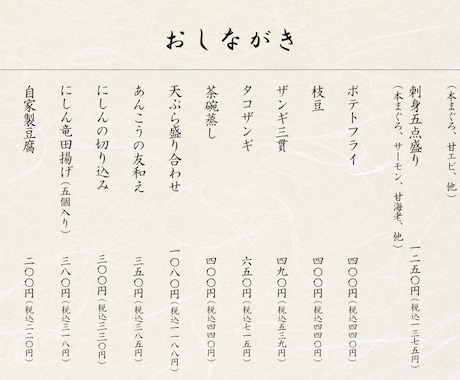 おしながき
(本まぐろ、甘エビ、他)
刺身五点盛り 一二五〇円(税込一三七五円)
(本まぐろ、サーモン、甘海老、他)
ポテトフライ 四〇〇円(税込四四〇円)
枝豆 四〇〇円(税込四四〇円)
ザンギ三貫 四九〇円(税込五三九円)
タコザンギ 六五〇円(税込七一五円)
茶碗蒸し 四〇〇円(税込四四〇円)
天ぷら盛り合わせ 一〇八〇円(税込一一八八円)
あんこうの友和え 三五〇円(税込三八五円)
にしんの切り込み 三〇〇円(税込三三〇円)
にしん竜田揚げ(五個入り) 三八〇円(税込三一八円)
自家製豆腐 二〇〇円(税込二二〇円)